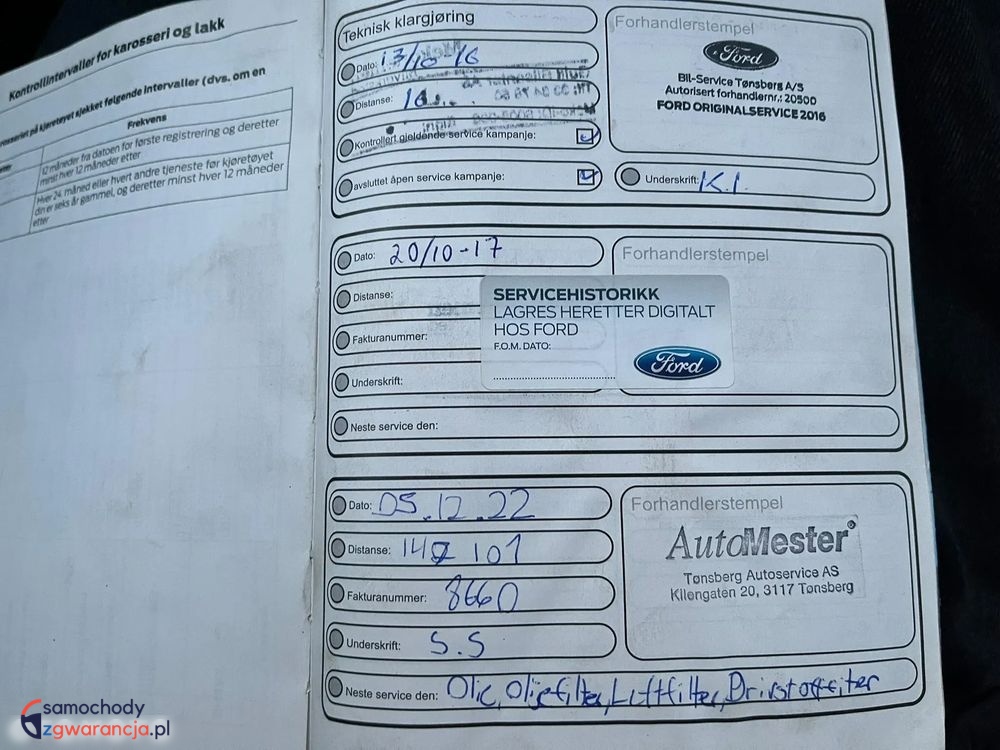 Kontrollintervaller for karosseri og lakk
på kjøretøyet sjekket følgende intervaller (dvs. om en
Frekvens
12 måneder fra datoen for første registrering og deretter
minst hver 12 måneder etter
Hver 24. måned eller hvert andre tjeneste før kjøretøyet
din er seks år gammel, og deretter minst hver 12 måneder
etter
Teknisk klargjøring
Dato: 13/10-16
Distanse: 10
Kontrollert gjeldende service kampanje:
avsluttet åpen service kampanje:
Forhandlerstempel
Ford
Bil-Service Tønsberg A/S
Autorisert forhandlernr.: 20500
FORD ORIGINALSERVICE 2016
Underskrift: K.I.
Dato: 20/10-17
Distanse:
Fakturanummer:
Underskrift:
Neste service den:
Forhandlerstempel
SERVICEHISTORIKK
LAGRES HERETTER DIGITALT
HOS FORD
F.O.M. DATO:
Ford
Dato: 05.12.22
Distanse: 142 101
Fakturanummer: 8660
Underskrift: S.S
Neste service den: Olje, Oljefilter, Luftfilter, Drivstoffilter
Forhandlerstempel
AutoMester
Tønsberg Autoservice AS
Kilengaten 20, 3117 Tønsberg
samochody
zgwarancja.pl